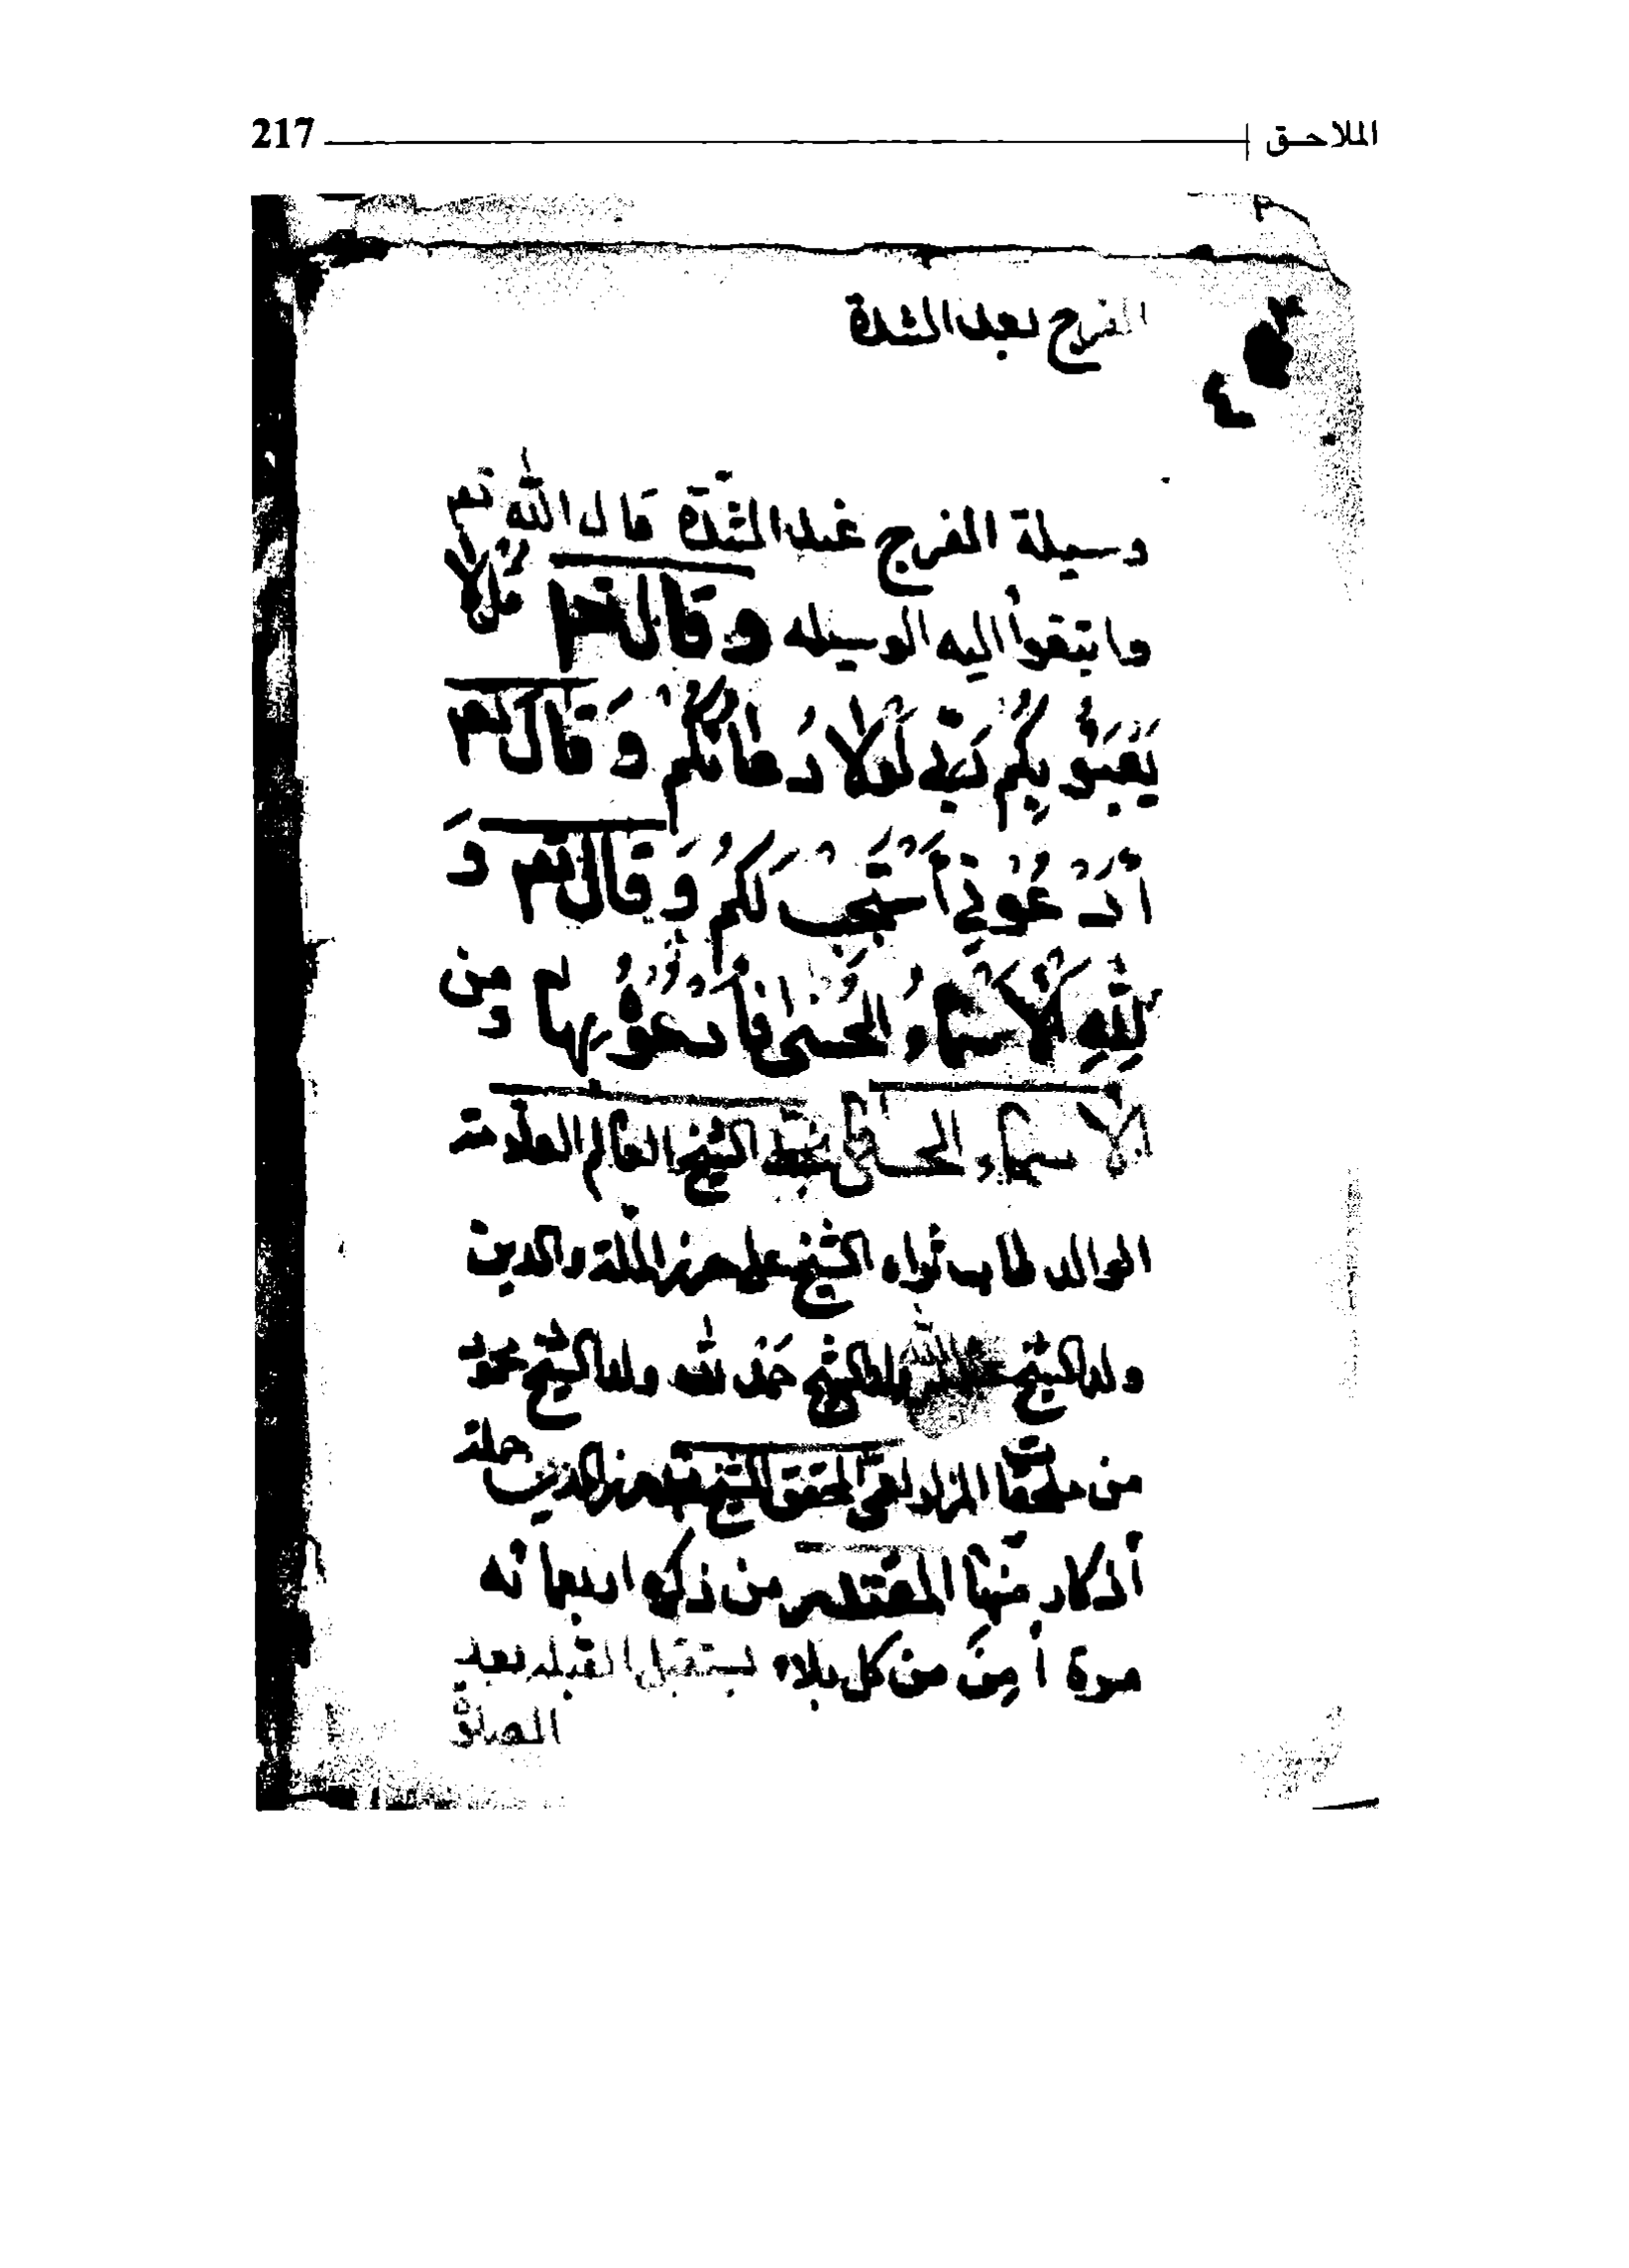 الملاحق 217
الفرج بعد الشدة
٤
وسيلة الفرج عند الشدة قال الله تع
وابتغوا اليه الوسيله وقال تع قل لا
يَعْبَؤُ بِكُمْ رَبّي لَوْلا دُعائكُم وَقال تع
أدْعُوني أَسْتَجِبْ لَكُمْ وَقال تع وَ
لِلّهِ اْلأَسْمآءُ الْحُسنى فَادْعُوْهُ بِها ومن
الاسماء الحسنى الشيخ العالم العلامة
الوالد طاب ثراه الشيخ على عز الملة والدين
ولد الشيخ ولد الشيخ حمد لله ولد الشيخ
من المحقق الشيخ عز الدين جملة
أذكار منها المقتدر من ذكره اربعمائه
مرة أمِنَ من كل بلاء يستقبل القبله بعد
الصلوة